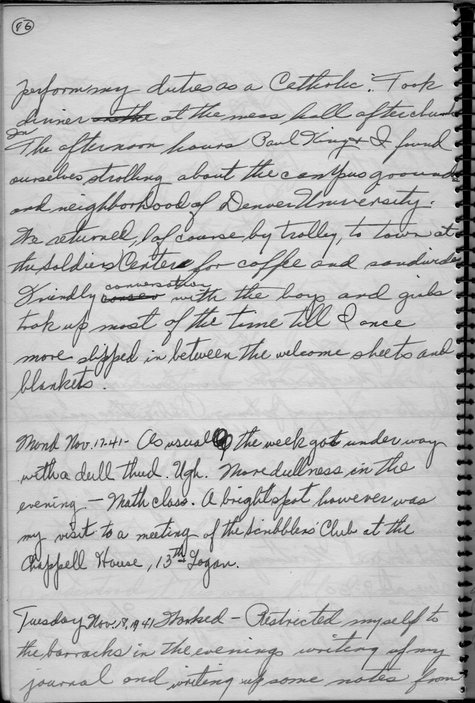 96
perform my duties as a Catholic. Took
dinner at the mess hall after church
In The afternoon hours Paul King & I found
ourselves strolling about the campus grounds
and neighborhood of Denver University.
We returned, of course by trolley, to town at
the Soldiers Center for coffee and sandwiches
Friendly conversation with the boys and girls
took up most of the time till I once
more slipped in between the welcome sheets and
blankets.
Mond Nov. 17-41- As usual the week got under way
with a dull thud. Ugh. More dullness in the
evening - Math class. A bright spot however was
my visit to a meeting of the Scribblers' Club at the
Chappell House, 13th Logan.
Tuesday Nov. 18, 1941 Worked - Restricted myself to
the barracks in the evenings writing of my
journal and writing up some notes from